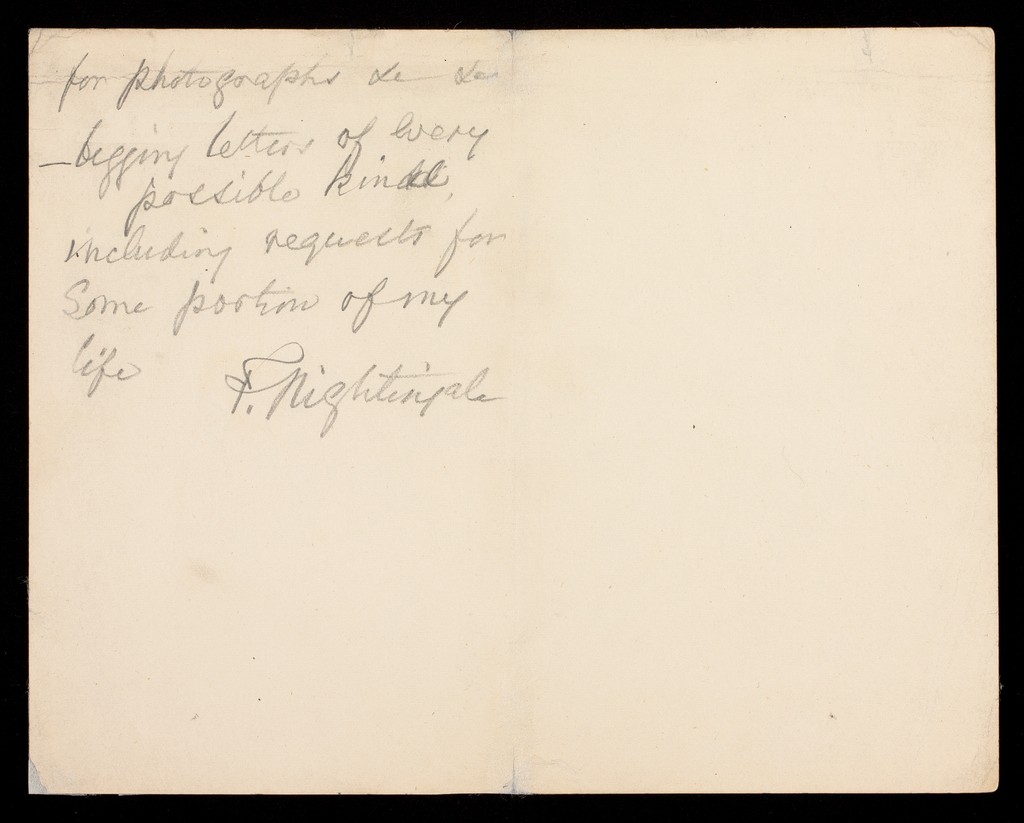 for photographs &c &c
— begging letters of every
possible kind,
including requests for
Some portion of my
life
F. Nightingale